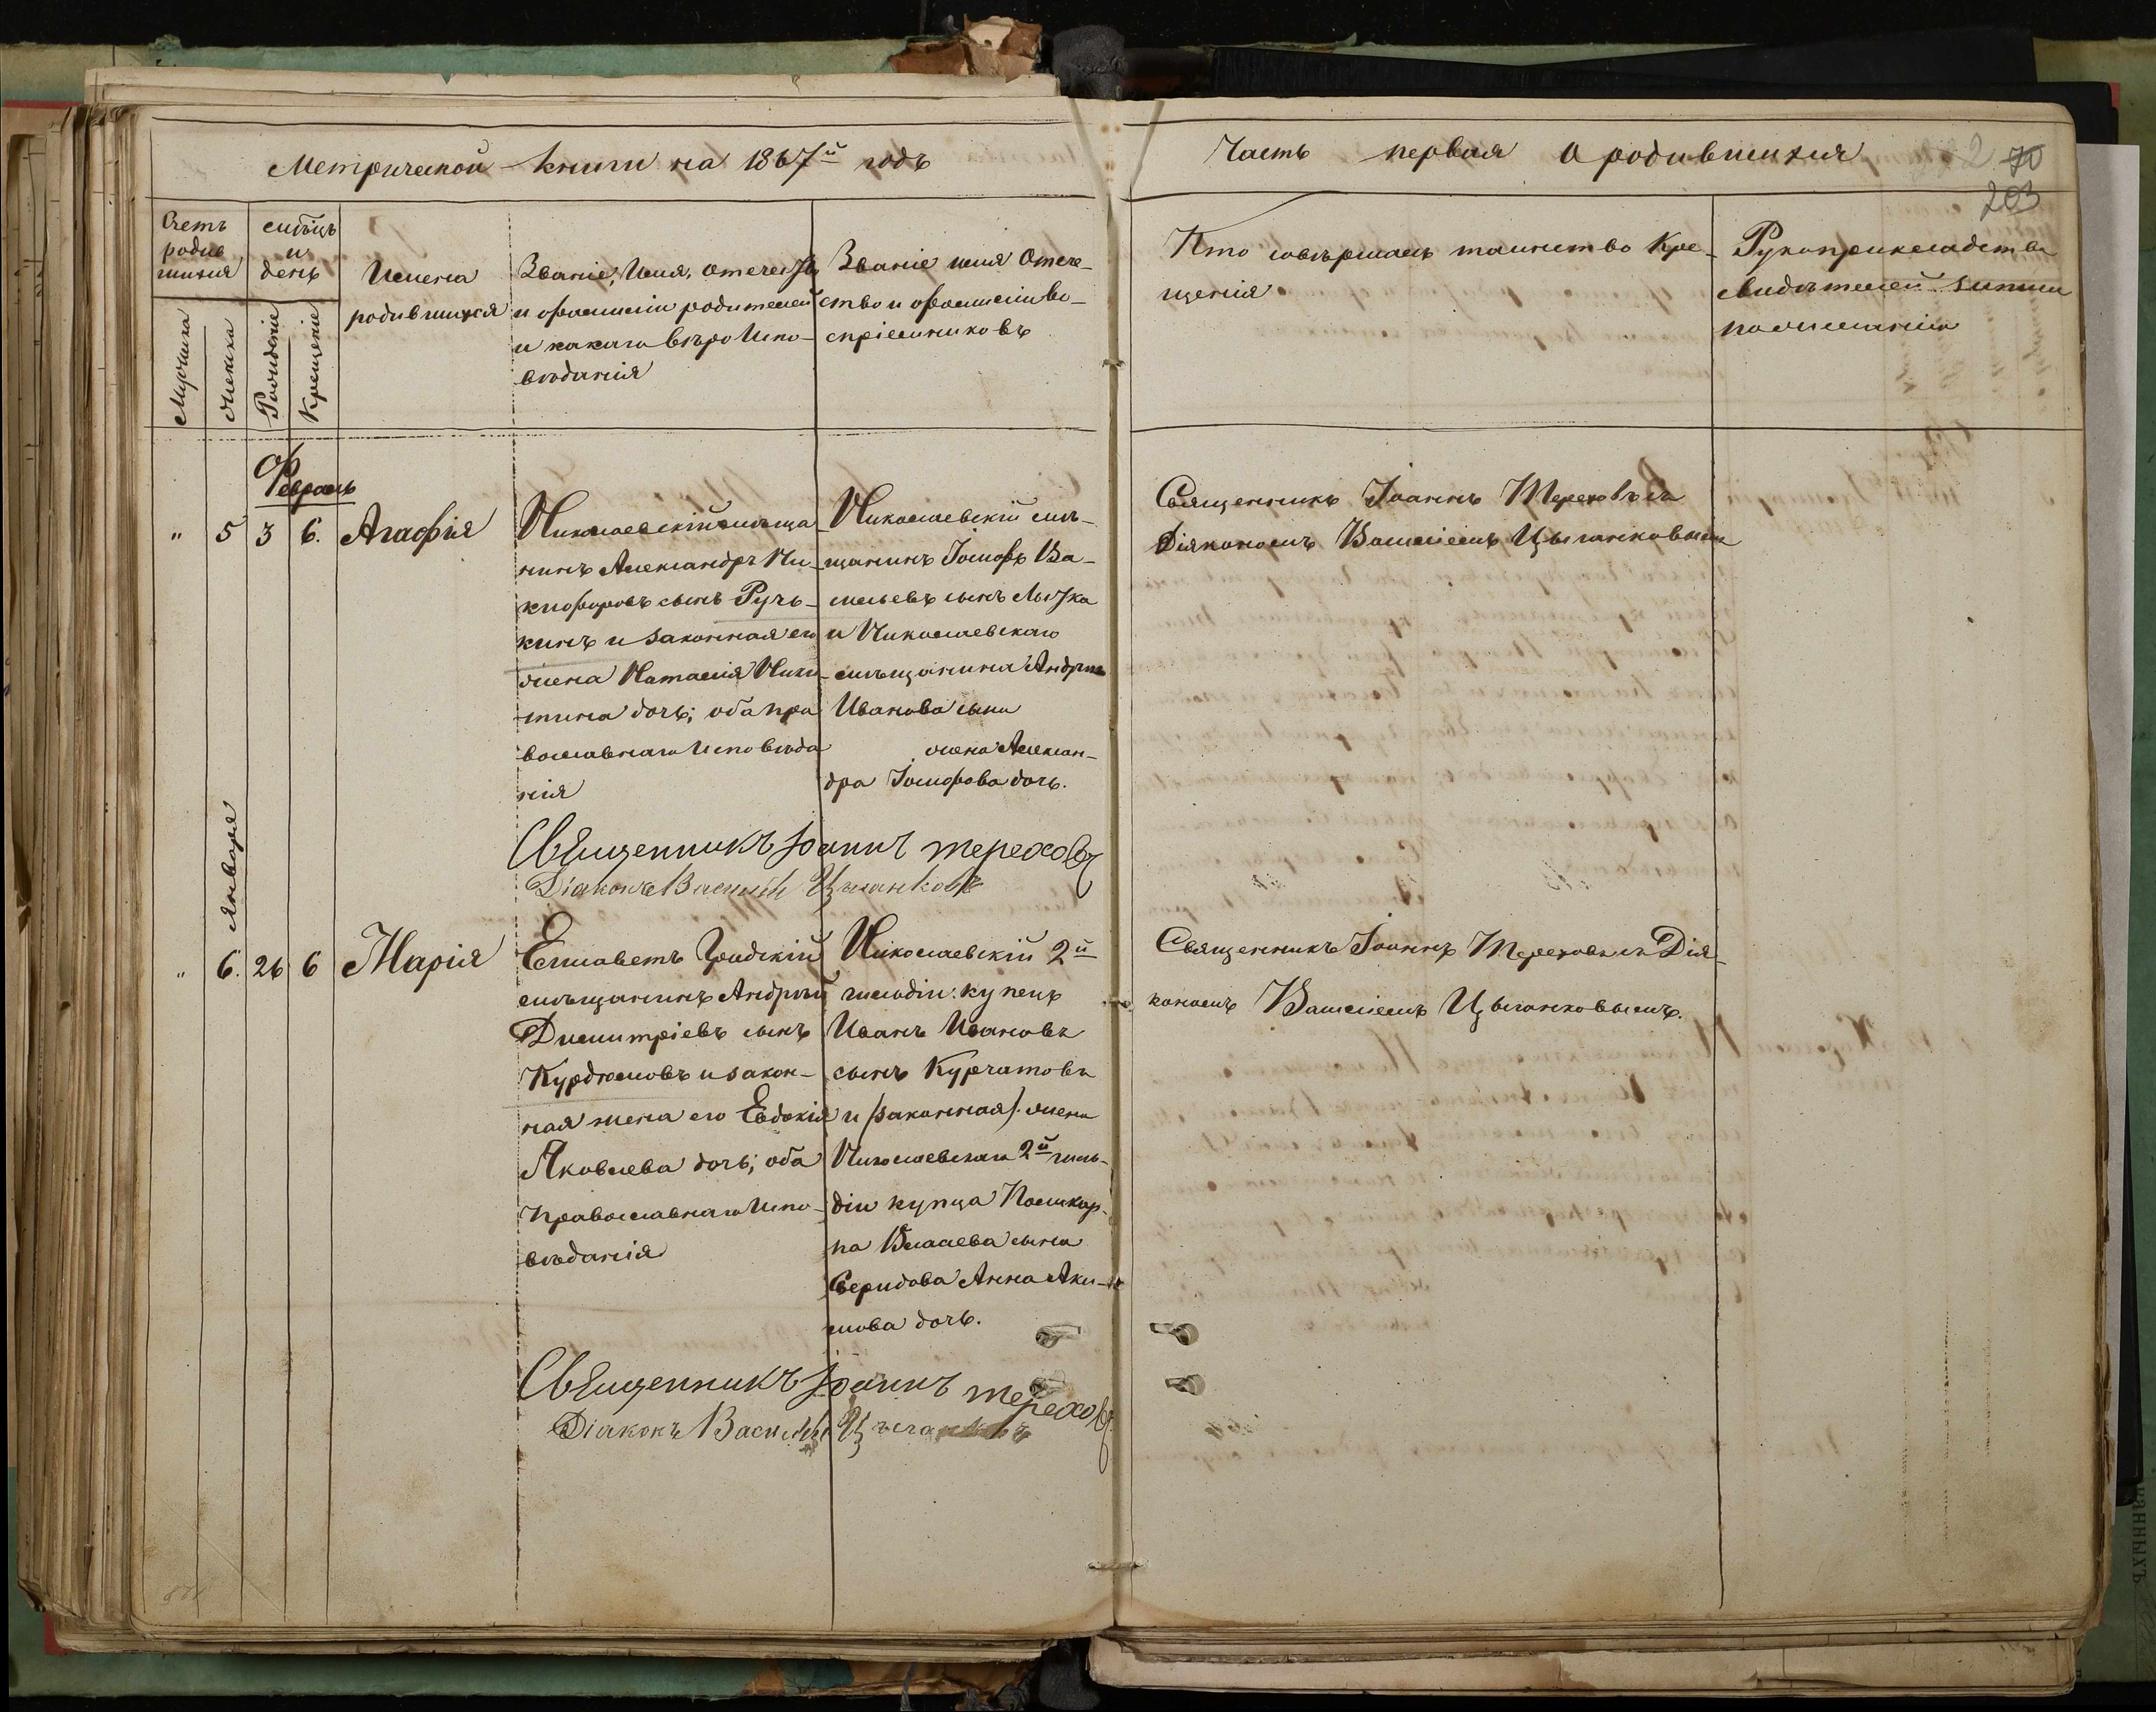 Метрической книги на 1867й годъ
Часть первая о родившихся
70
203
Счетъ
родив
шихся
Мужска
Женска
мѣсяцъ
и
день
Рожденіе
Крещеніе
Имена
родившихся
Званіе, Имя, отечество
и фамиліи родителей
и какаго вѣро Испо-
вѣданія
Званіе имя Отече-
ство и фамиліи во-
спріемниковъ
Кто совѣршалъ таинство Кре-
щенія
Рукоприкладство
свидѣтелей записи
по желанію
Февраль
" 5 3 6. Агафія
Николаевскій мѣща
нинъ Александръ Ни-
кифоровъ сынъ Ручь-
кинъ и законная его
жена Наталія Ники-
тина дочь; оба пра
вославнаго Исповѣда
нія
Николаевскій мѣ-
щанинъ Іосифъ Ва-
сильевъ сынъ
и Николаевскаго
мѣщанина Андрея
Иванова сына
жена Алексан-
дра Іосифова дочь.
Священникъ Іоаннъ Тереховъ съ
Діякономъ Василіемъ Цыганковымъ
Священникъ Іоаннъ Тереховъ
Діаконъ Василій Цыганковъ
Января
" 6. 26 6 Марія
Елисаветъ Градскій
мѣщанинъ Андрей
Димитріевъ сынъ
Курдюмовъ и закон-
ная жена его Евдокія
Яковлева дочь; оба
православнаго Испо-
вѣданія
Николаевскій 2й
гильдіи: купецъ
Иванъ Ивановъ
сынъ Курчатовъ
и /законная/ жена
Николаевскаго 2й гиль-
діи купца Поликар-
па Власаева сына
Серидова Анна Аки-
мова дочь.
Священникъ Іоаннъ Тереховъ съ Дія-
кономъ Василіемъ Цыганковымъ.
Священникъ Іоаннъ Тереховъ
Діаконъ Василій Цыганковъ